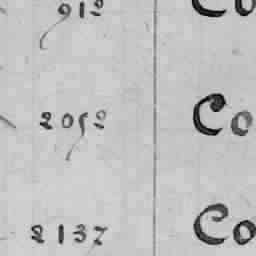 912 Co
2052 Co
2137 Co